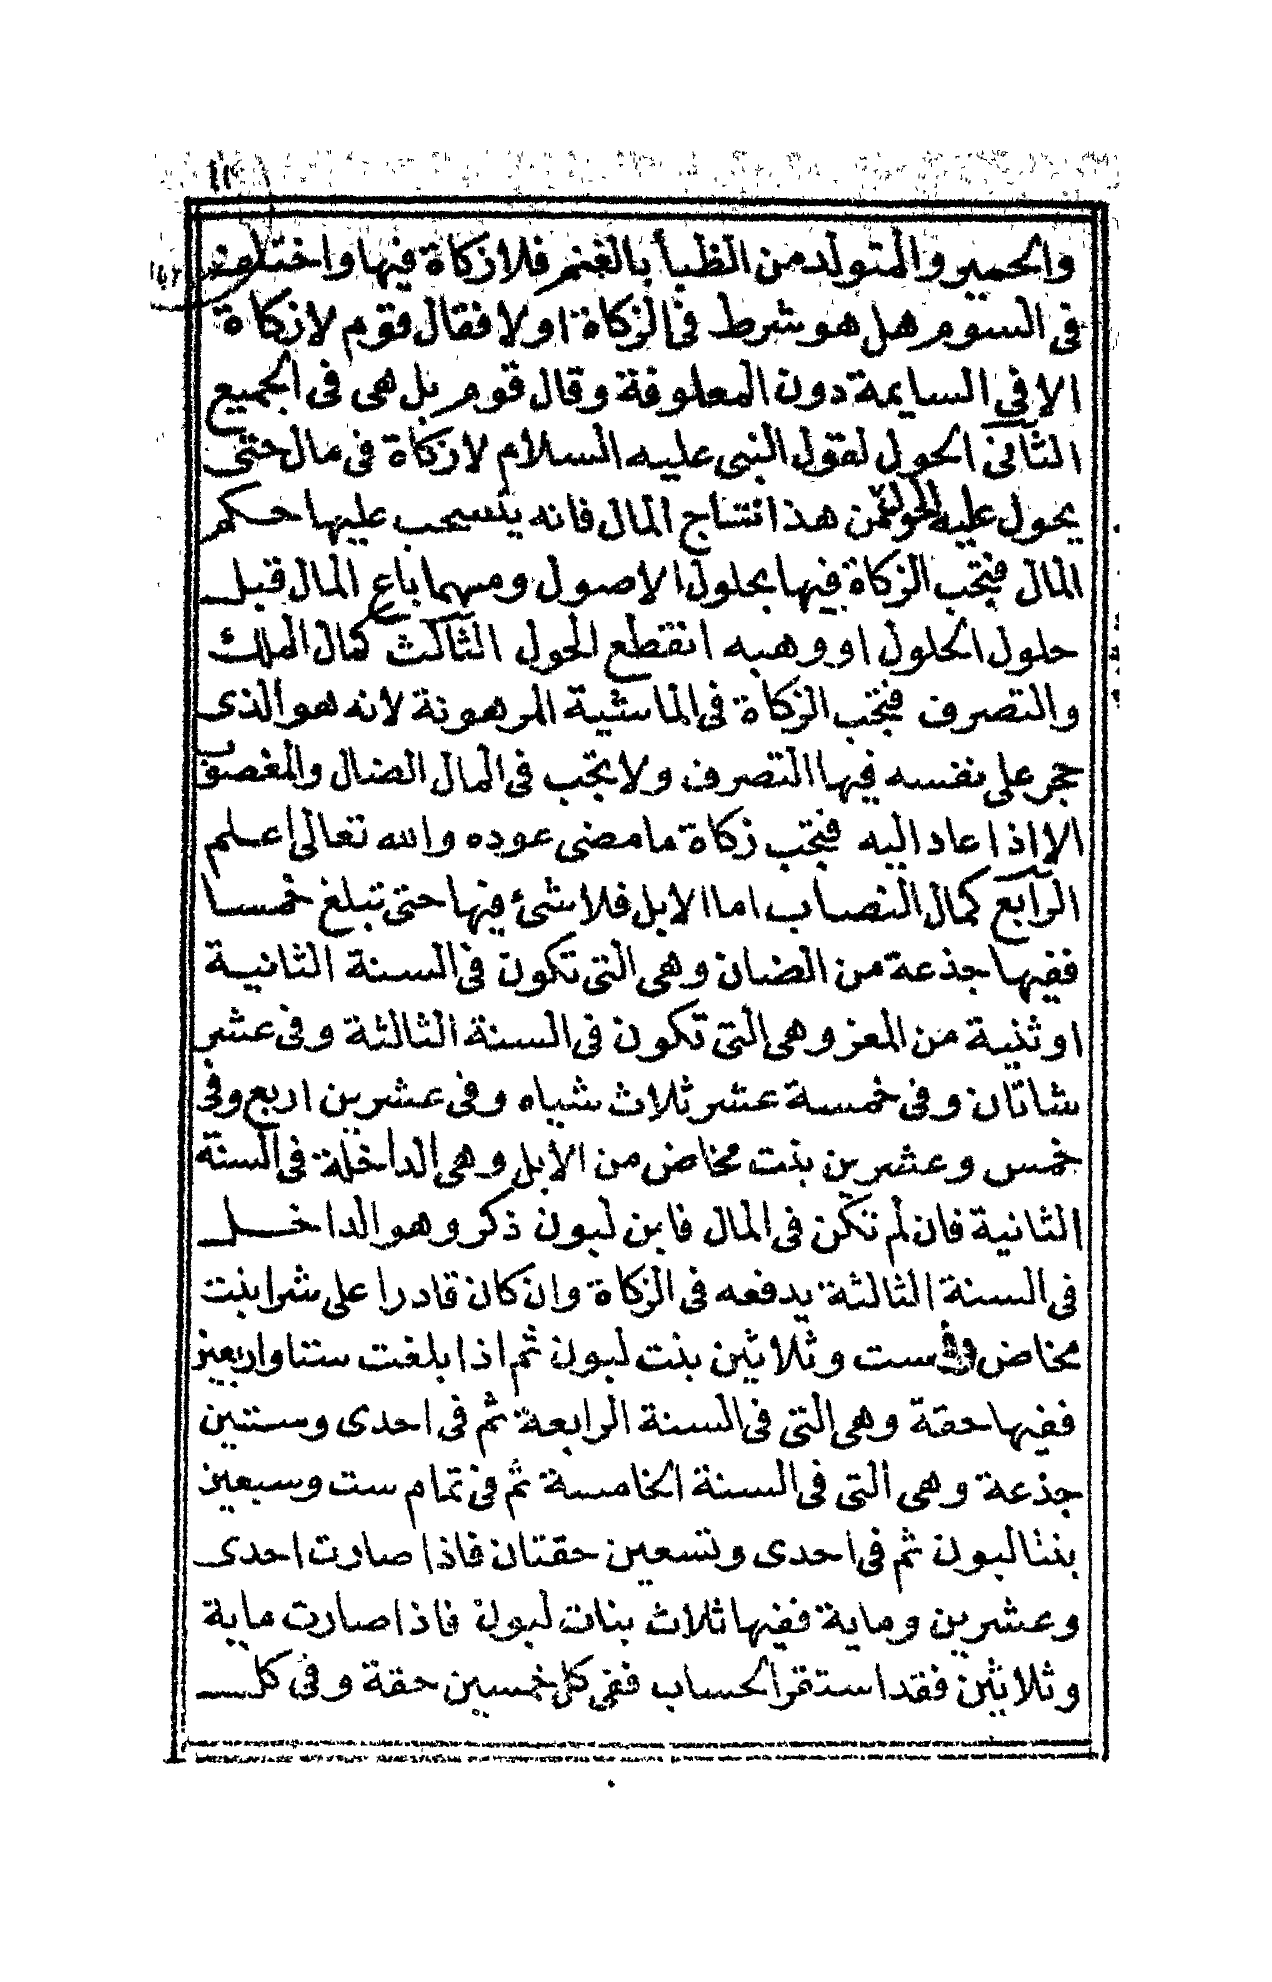 والحمير والمتولد من الظبأ بالغنم فلا زكاة فيها واختلف
فى السوم هل هو شرط فى الزكاة او لا فقال قوم لا زكاة
الا فى السايمة دون المعلوفة وقال قوم بل هى فى الجميع
الثانى الحول لقول النبى عليه السلام لا زكاة فى مال حتى
يحول عليه الحول فمن هذا نتاج المال فانه ينسحب عليها حكم
المال فتجب الزكاة فيها بحلول الاصول ومهما باع المال قبل
حلول الحلول او وهبه انقطع الحول الثالث كمال الملك
والتصرف فتجب الزكاة فى الماشية المرهونة لانه هو الذى
حجر على نفسه فيها التصرف ولا تجب فى المال الضال والمغصوب
الا اذا عاد اليه فتجب زكاة ما مضى عوده والله تعالى اعلم
الرابع كمال النصاب اما الابل فلا شئ فيها حتى تبلغ خمسا
ففيها جذعة من الضان وهى التى تكون فى السنة الثانية
او ثنية من المعز وهى التى تكون فى السنة الثالثة وفى عشر
شاتان وفى خمسة عشر ثلاث شياه وفى عشرين اربع وفى
خمس وعشرين بنت مخاض من الابل وهى الداخلة فى السنة
الثانية فان لم تكن فى المال فابن لبون ذكر وهو الداخل
فى السنة الثالثة يدفعه فى الزكاة وان كان قادرا على شرا بنت
مخاض وفى ست وثلاثين بنت لبون ثم اذا بلغت ستا واربعين
ففيها حقة وهى التى فى السنة الرابعة ثم فى احدى وستين
جذعة وهى التى فى السنة الخامسة ثم فى تمام ست وسبعين
بنتا لبون ثم فى احدى وتسعين حقتان فاذا صارت احدى
وعشرين وماية ففيها ثلاث بنات لبون فاذا صارت ماية
وثلاثين فقد استقر الحساب ففى كل خمسين حقة وفى كل